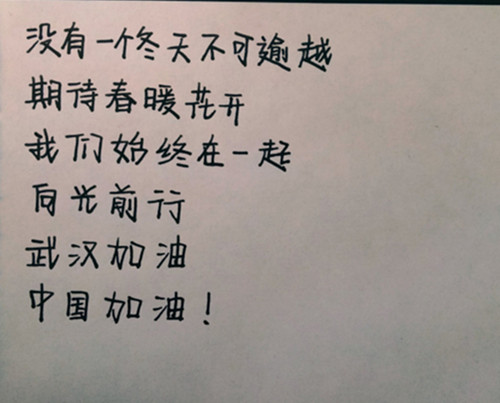 没有一个冬天不可逾越
期待春暖花开
我们始终在一起
向光前行
武汉加油
中国加油！